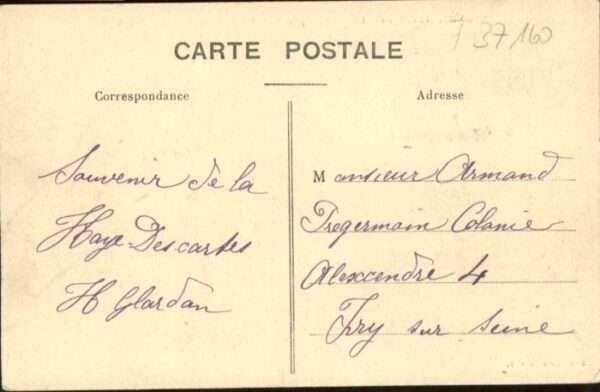 T 37160
CARTE POSTALE
Correspondance
Adresse
Souvenir de la
Haye-Descartes
H Glardon
Monsieur Armand
Tregermain Colonie
Alexcendre 4
Ivry sur Seine